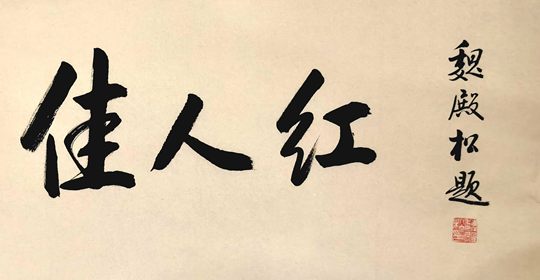 佳人红
魏殿松题